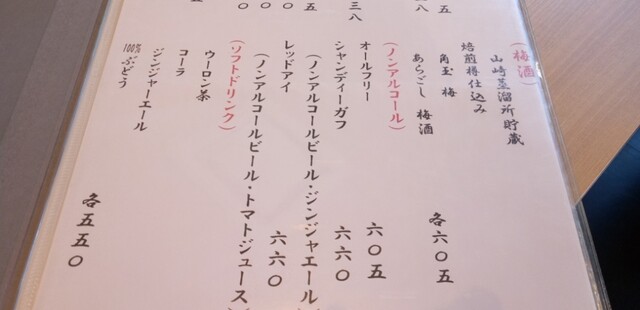 (梅酒)
山崎蒸溜所貯蔵
焙煎樽仕込み
角玉 梅
あらごし 梅酒
各六〇五
(ノンアルコール)
オールフリー 六〇五
シャンディーガフ 六六〇
(ノンアルコールビール・ジンジャエール)
レッドアイ 六六〇
(ノンアルコールビール・トマトジュース)
(ソフトドリンク)
ウーロン茶
コーラ
ジンジャーエール
100%ぶどう
各五五〇